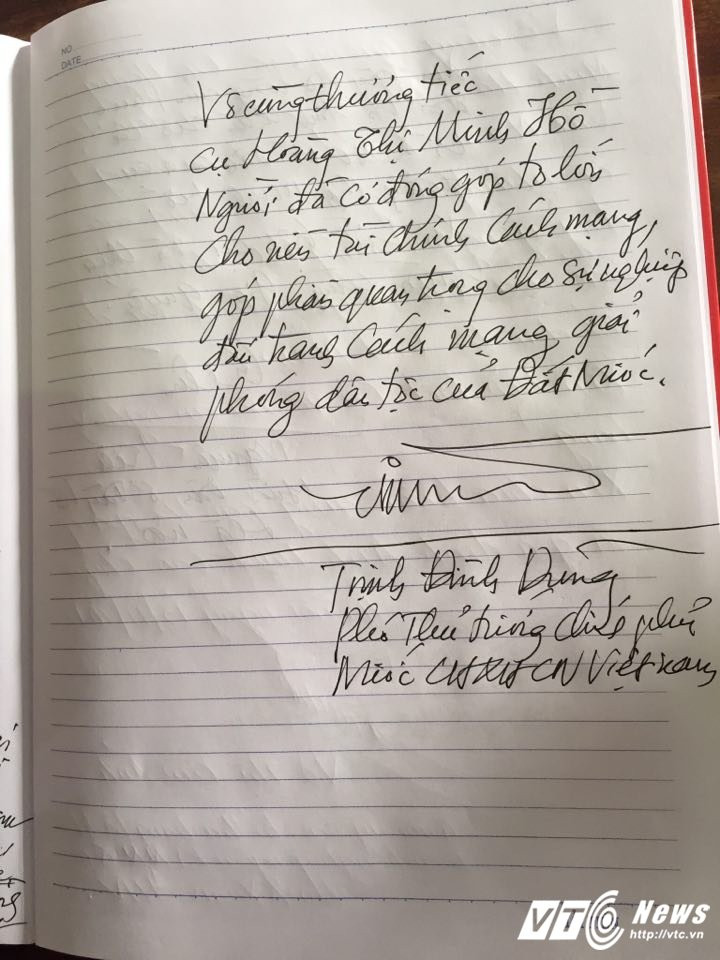 NO
DATE
Vô cùng thương tiếc
Cụ Hoàng Thị Minh Hồ
Người đã có đóng góp to lớn
Cho nền tài chính Cách mạng,
góp phần quan trọng cho sự nghiệp
đấu tranh Cách mạng, giải
phóng dân tộc của Đất Nước.
Trịnh Đình Dũng
Phó Thủ tướng chính phủ
Nước CHXHCN Việt nam
VTC News
http://vtc.vn